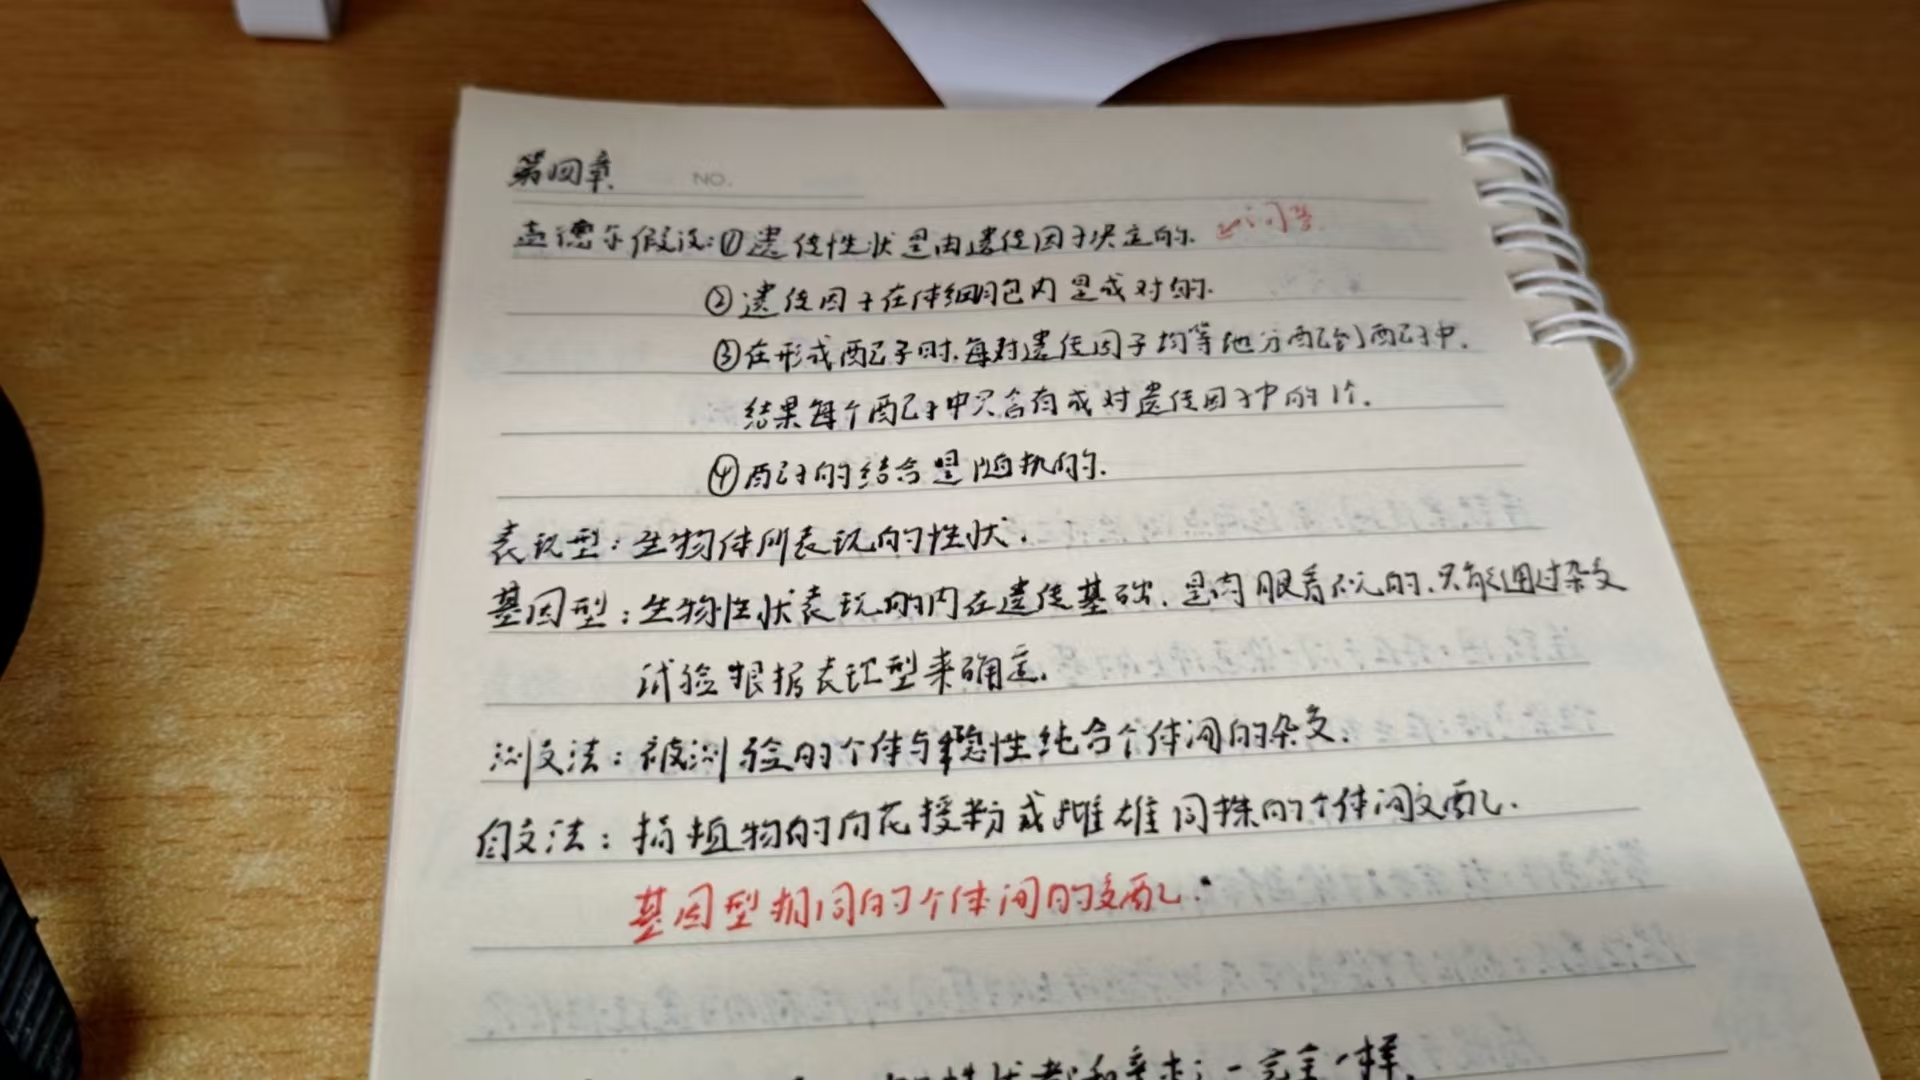 第四章 NO.
孟德尔假设:①遗传性状是由遗传因子决定的. 问答
②遗传因子在体细胞内是成对的.
③在形成配子时,每对遗传因子均等地分配到配子中,
结果每个配子中只含有成对遗传因子中的1个.
④配子的结合是随机的.
表现型:生物体所表现的性状.
基因型:生物性状表现的内在遗传基础,是肉眼看不见的,只能通过杂交
试验根据表现型来确定.
测交法:被测验的个体与隐性纯合个体间的杂交.
自交法:指植物的自花授粉或雌雄同株的个体间交配.
基因型相同的个体间的交配.
的性状都和亲本 完全一样.